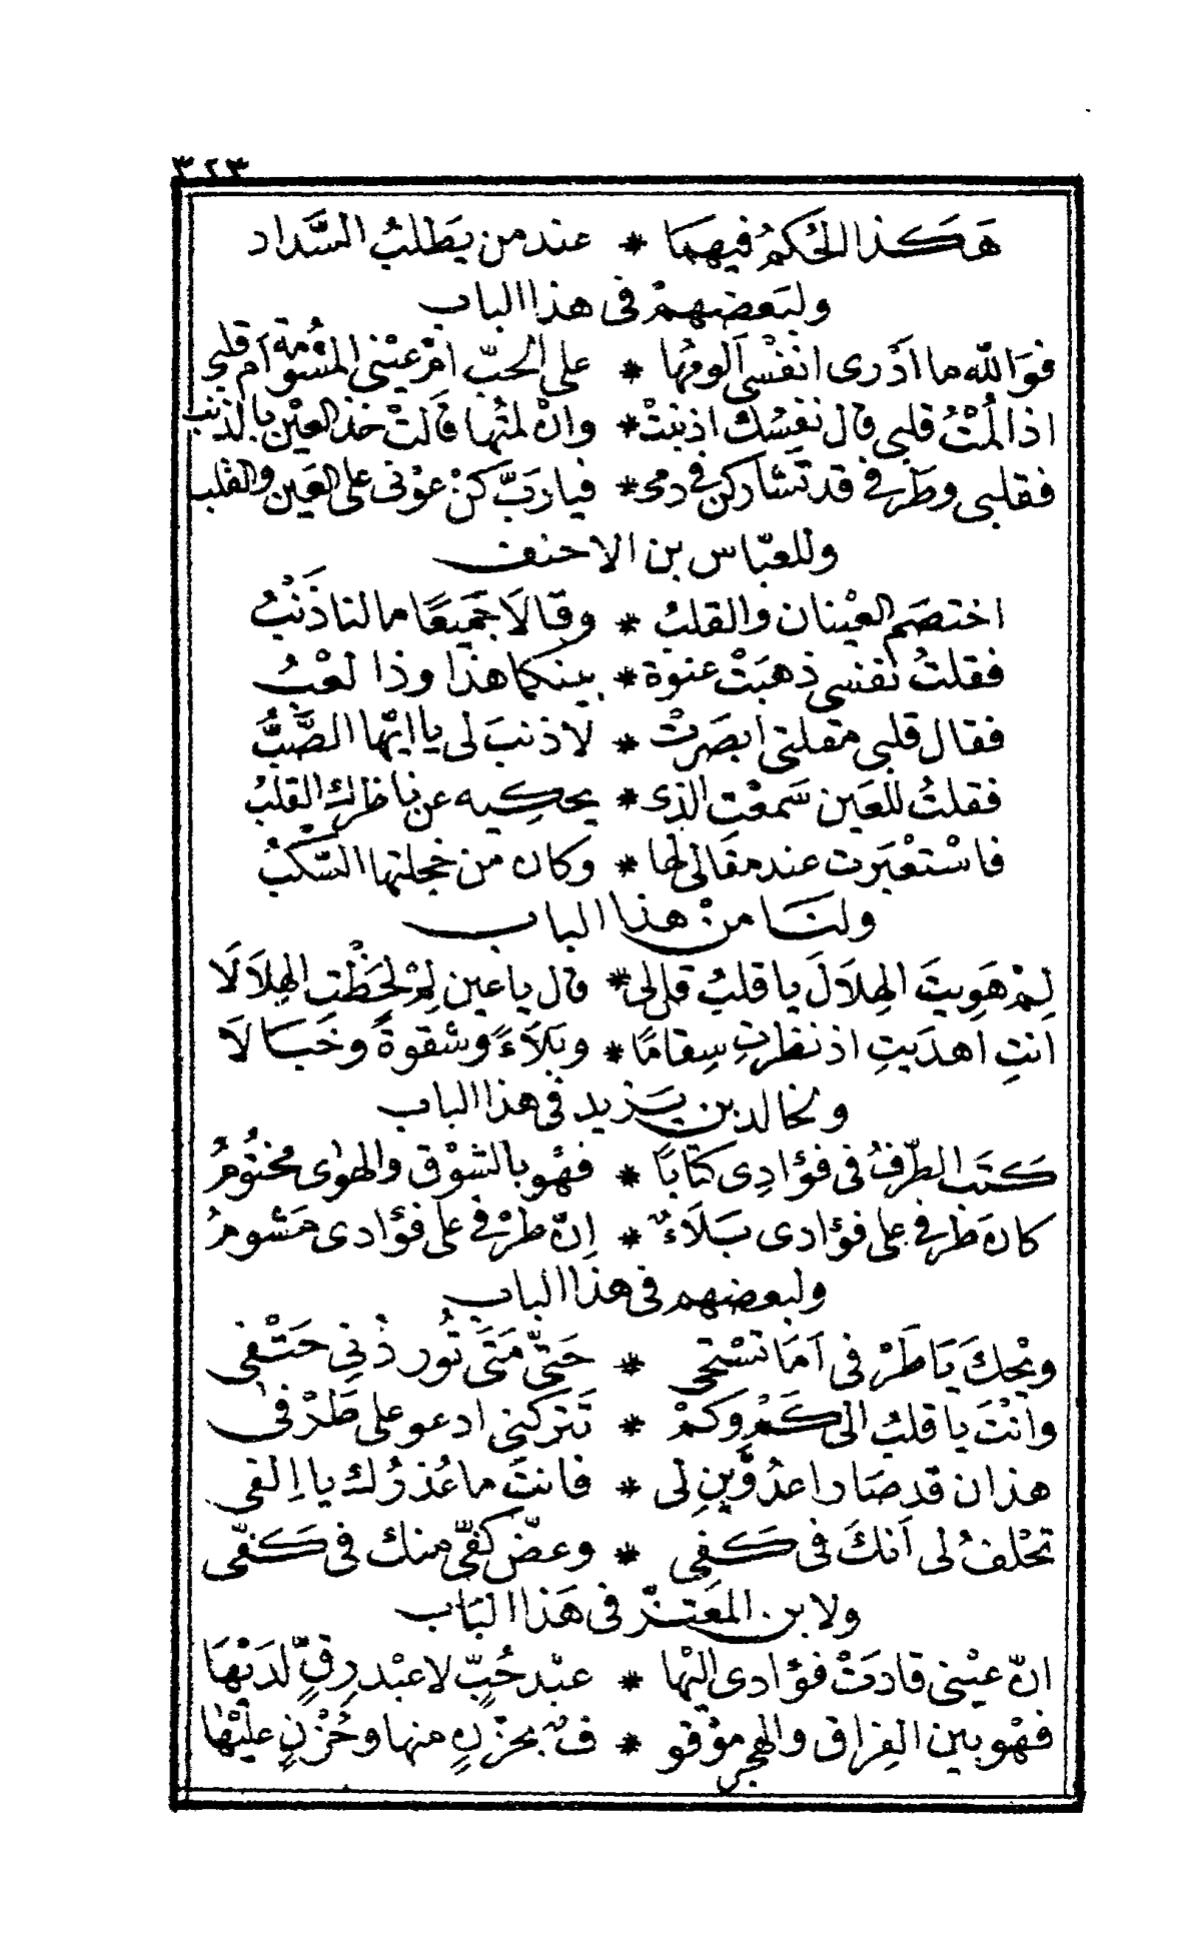 ٣٢٣
هَكَذا الحُكمُ فيهِمَا * عند من يَطلبُ السَّداد
ولبَعضهمْ فى هذا الباب
فوَالله ما اَدْرى انفْسى اَلومُها * على الحبّ امْ عيْنى المشُومة اَم قلبى
اذا لُمْتُ قلبى قال نفسُك اذنبتْ * وان لمتُها قالتْ خذ العيْن بالذنب
فقلبى وطَرفى قد تَشاركن فى دمى * فيا ربَّ كنْ عوْنى على العَين والقلب
وللعبّاس بن الاحنف
اختصَم العيْنان والقلبُ * وقالَا جَميعًا ما لنا ذَنْبُ
فقلتُ نفسى ذهبَتْ عنوة * بينكما هذا وذا لعْبُ
فقال قلبى مقلتى ابصَرتْ * لا ذنبَ لى يا ايّها الصَّبُّ
فقلتُ للعَين سَمعْت الذى * يحكِيه عن ناظرك القلبُ
فاسْتعْبَرت عند مقالى لها * وكان من خجلتها السّكبُ
ولنَا منْ هذا الباب
لِمْ هَوِيتَ الهِلَالَ يا قلبُ قل لى * قال يا عين لِمْ لحَظْتِ الهِلَالَا
انتِ اَهدَيتِ اذ نظرتِ سِقامًا * وبَلَاءً وشقوةً وخَبَالَا
ولخالد بن يَزيد فى هذا الباب
كَتَبَ الطّرفُ فى فؤادِى كتابًا * فهْو بالشوْق والهوٰى مختُومُ
كان طرفى على فؤادى بَلَاءٌ * اِنّ طرْفى على فؤادى مَشومُ
ولبعضهم فى هذا الباب
ويْحكَ يَا طَرْفى اَمَا تسْتحى * حَتّى مَتَى تُوردُنِى حَتْفى
وانْتَ يا قلبُ الى كَمْ وَكمْ * تَتركنِى ادعو على طَرْفى
هذان قد صَارا عدُوَّينِ لى * فانتَ ما عُذرُك يا اِلفى
تحْلفُ لى اَنكَ فى كَفى * وعضّ كفّى منك فى كَفّى
ولابن المعَتزّ فى هَذا البَاب
انّ عيْنى قادَتْ فؤادى اليْها * عبْد حُبّ لا عبْد رِقٍّ لدَيْهَا
فهْو بين الفِراق والهجر موْقو * فٌ بحزْنٍ منها وحُزْنٍ عليْها